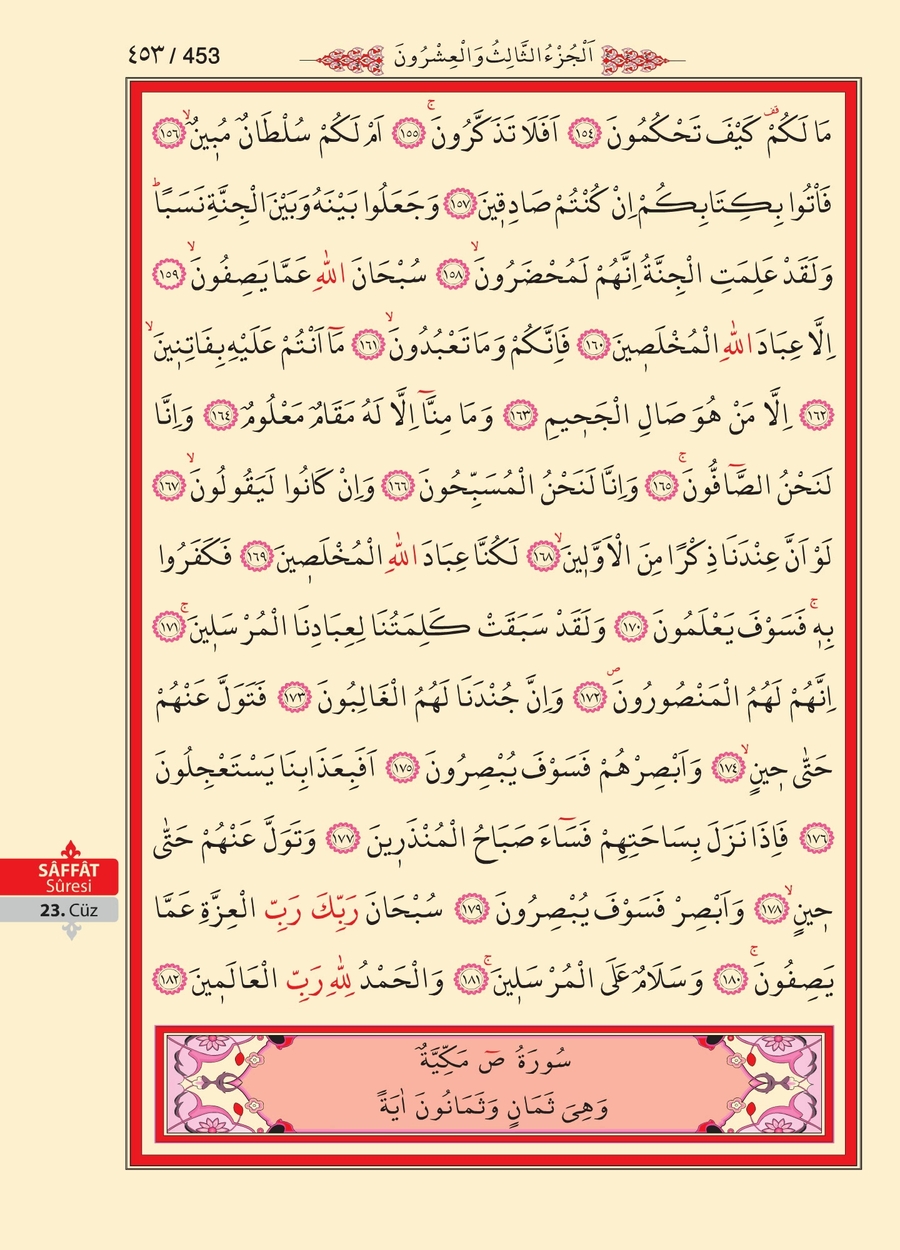 ٤٥٣ / 453
اَلْجُزْءُ الثَّالِثُ وَالْعِشْرُونَ
مَا لَكُمْ۠ كَيْفَ تَحْكُمُونَ ﴿١٥٤﴾ اَفَلَا تَذَكَّرُونَۚ ﴿١٥٥﴾ اَمْ لَكُمْ سُلْطَانٌ مُب۪ينٌۙ ﴿١٥٦﴾
فَأْتُوا بِكِتَابِكُمْ اِنْ كُنْتُمْ صَادِق۪ينَ ﴿١٥٧﴾ وَجَعَلُوا بَيْنَهُ وَبَيْنَ الْجِنَّةِ نَسَبًاؕ
وَلَقَدْ عَلِمَتِ الْجِنَّةُ اِنَّهُمْ لَمُحْضَرُونَۙ ﴿١٥٨﴾ سُبْحَانَ اللّٰهِ عَمَّا يَصِفُونَۙ ﴿١٥٩﴾
اِلَّا عِبَادَ اللّٰهِ الْمُخْلَص۪ينَ ﴿١٦٠﴾ فَاِنَّكُمْ وَمَا تَعْبُدُونَۙ ﴿١٦١﴾ مَٓا اَنْتُمْ عَلَيْهِ بِفَاتِن۪ينَۙ
﴿١٦٢﴾ اِلَّا مَنْ هُوَ صَالِ الْجَح۪يمِ ﴿١٦٣﴾ وَمَا مِنَّٓا اِلَّا لَهُ مَقَامٌ مَعْلُومٌ ﴿١٦٤﴾ وَاِنَّا
لَنَحْنُ الصَّٓافُّونَۚ ﴿١٦٥﴾ وَاِنَّا لَنَحْنُ الْمُسَبِّحُونَ ﴿١٦٦﴾ وَاِنْ كَانُوا لَيَقُولُونَۙ ﴿١٦٧﴾
لَوْ اَنَّ عِنْدَنَا ذِكْرًا مِنَ الْاَوَّل۪ينَۙ ﴿١٦٨﴾ لَكُنَّا عِبَادَ اللّٰهِ الْمُخْلَص۪ينَ ﴿١٦٩﴾ فَكَفَرُوا
بِه۪ۚ فَسَوْفَ يَعْلَمُونَ ﴿١٧٠﴾ وَلَقَدْ سَبَقَتْ كَلِمَتُنَا لِعِبَادِنَا الْمُرْسَل۪ينَۚ ﴿١٧١﴾
اِنَّهُمْ لَهُمُ الْمَنْصُورُونَۖ ﴿١٧٢﴾ وَاِنَّ جُنْدَنَا لَهُمُ الْغَالِبُونَ ﴿١٧٣﴾ فَتَوَلَّ عَنْهُمْ
حَتّٰى ح۪ينٍۙ ﴿١٧٤﴾ وَاَبْصِرْهُمْ فَسَوْفَ يُبْصِرُونَ ﴿١٧٥﴾ اَفَبِعَذَابِنَا يَسْتَعْجِلُونَ
﴿١٧٦﴾ فَاِذَا نَزَلَ بِسَاحَتِهِمْ فَسَٓاءَ صَبَاحُ الْمُنْذَر۪ينَ ﴿١٧٧﴾ وَتَوَلَّ عَنْهُمْ حَتّٰى
ح۪ينٍۙ ﴿١٧٨﴾ وَاَبْصِرْ فَسَوْفَ يُبْصِرُونَ ﴿١٧٩﴾ سُبْحَانَ رَبِّكَ رَبِّ الْعِزَّةِ عَمَّا
يَصِفُونَۚ ﴿١٨٠﴾ وَسَلَامٌ عَلَى الْمُرْسَل۪ينَۚ ﴿١٨١﴾ وَالْحَمْدُ لِلّٰهِ رَبِّ الْعَالَم۪ينَ ﴿١٨٢﴾
سُورَةُ صٓ مَكِّيَّةٌ
وَهِىَ ثَمَانٍ وَثَمَانُونَ اٰيَةً
SÂFFÂT
Sûresi
23. Cüz